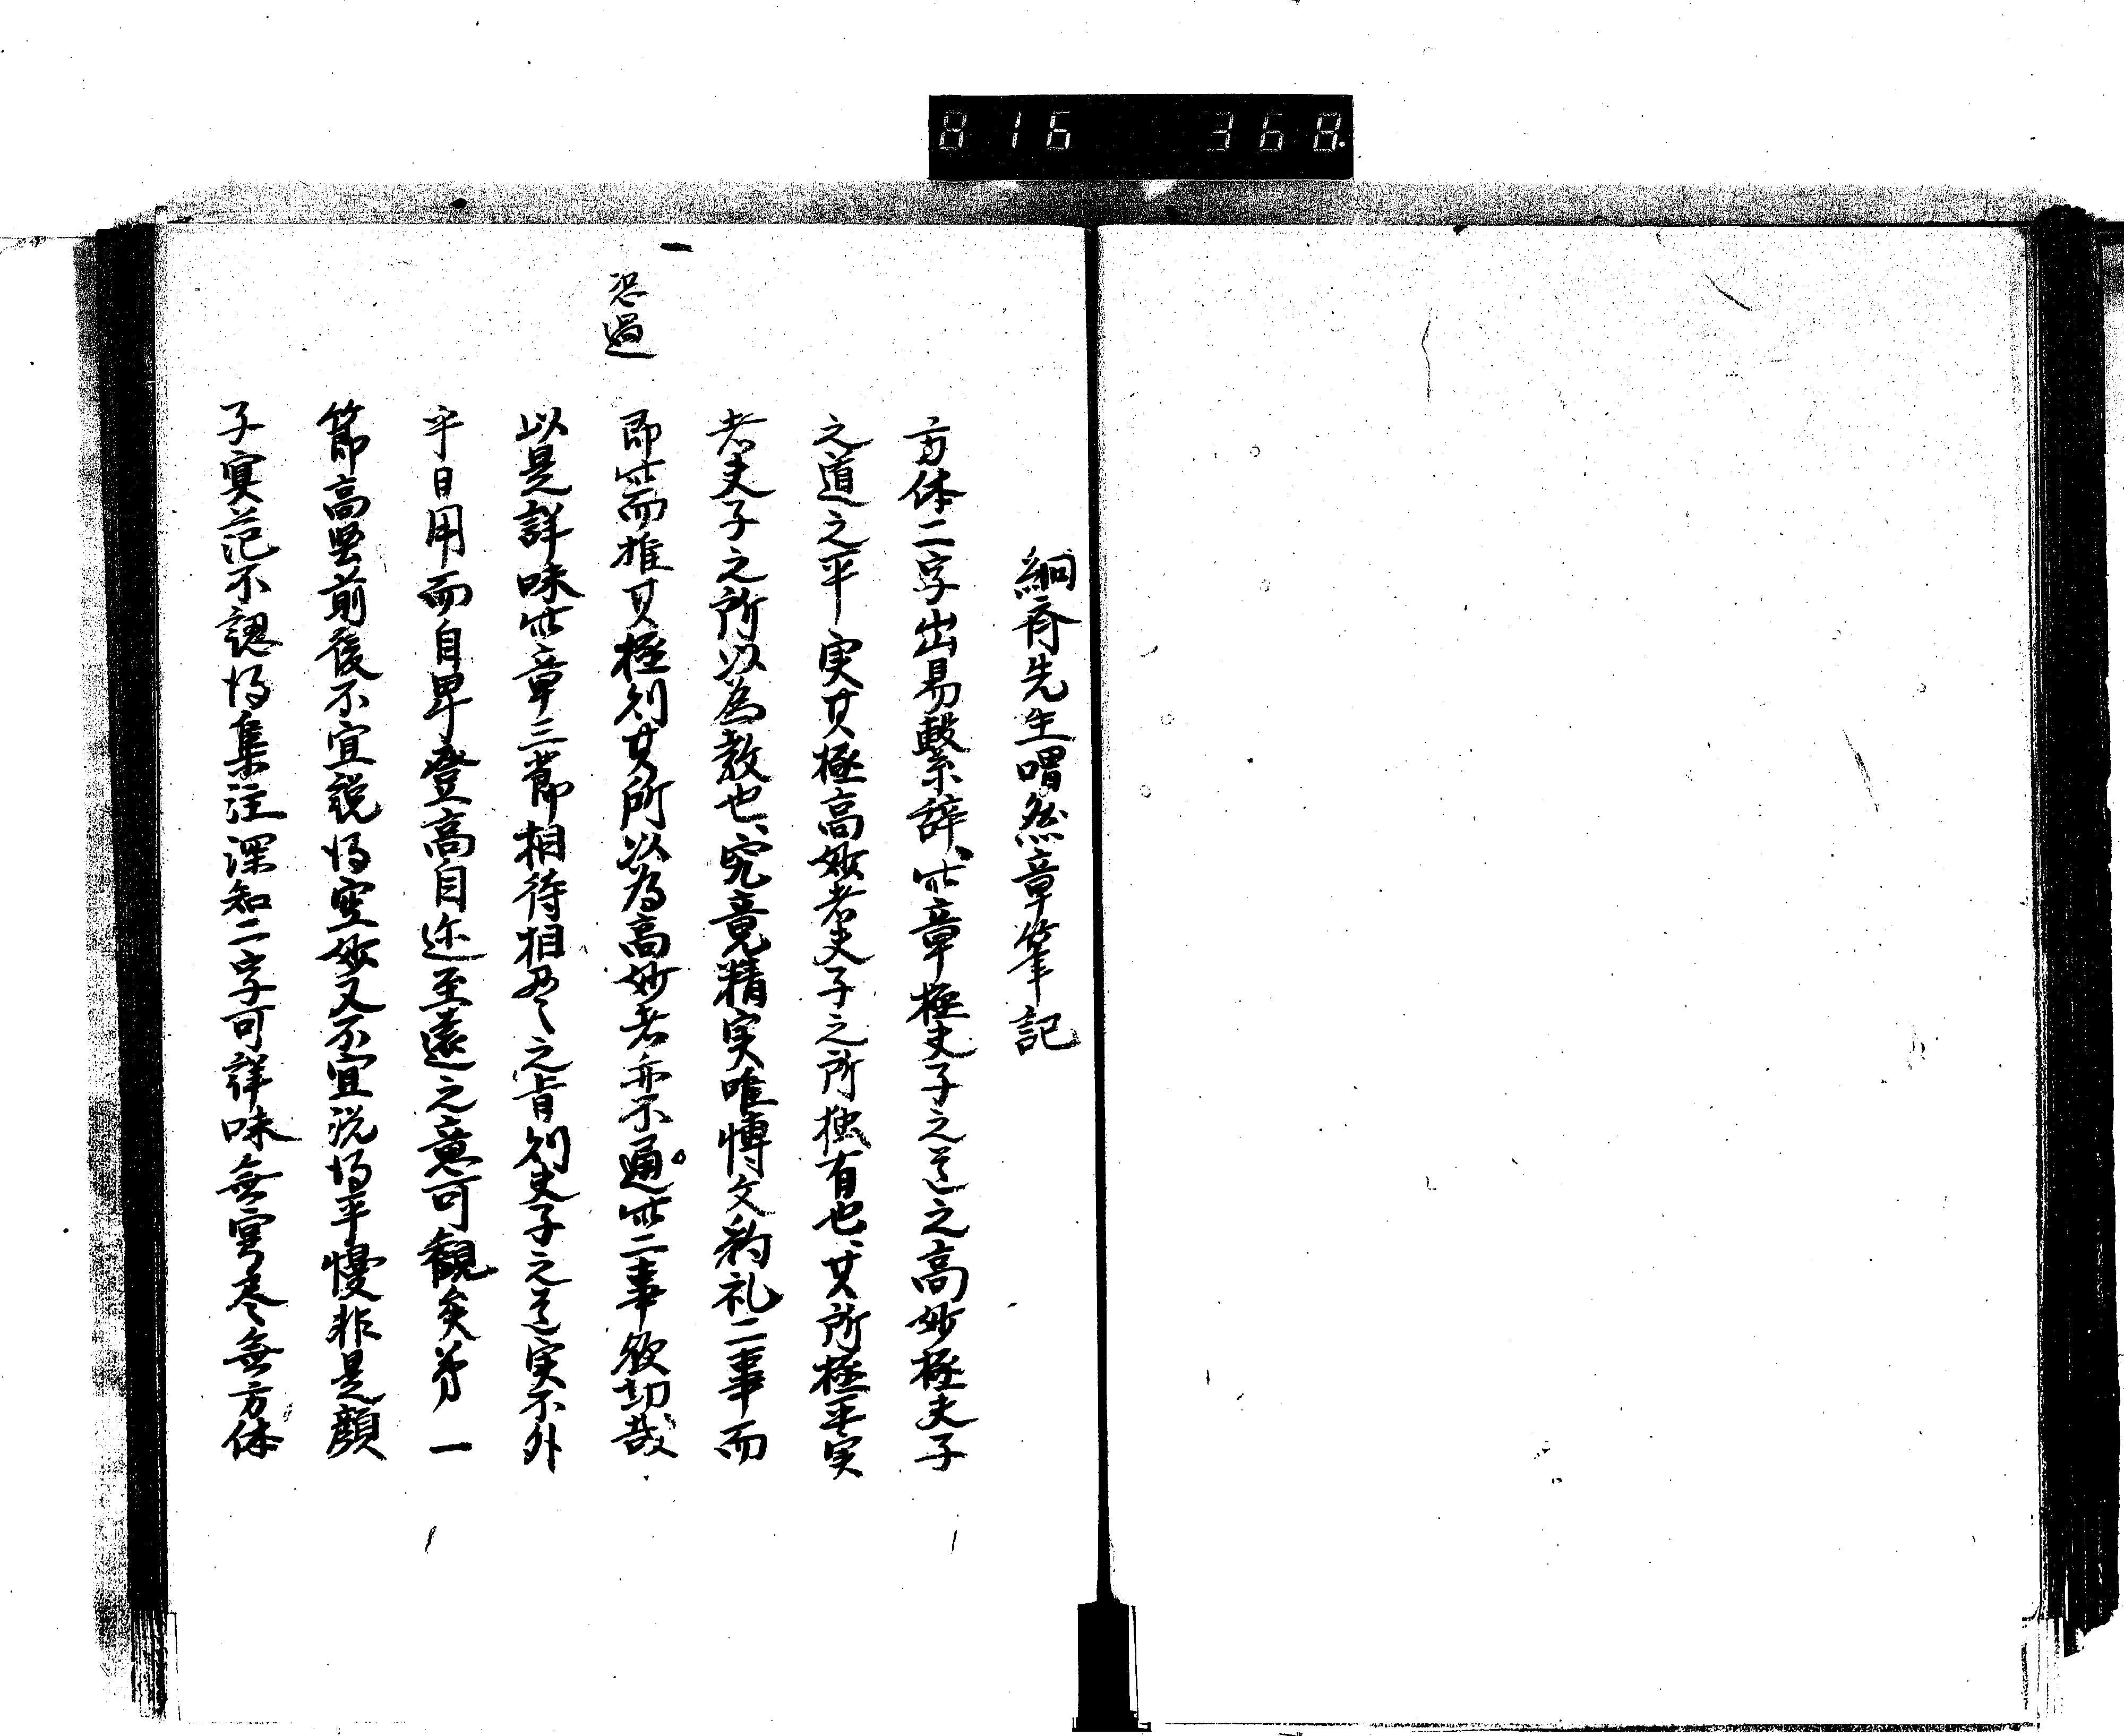 816 368
絅斎先生喟然章筆記
方体二字出易繫辞、此章極夫子之道之高妙極夫子
之道之平実其極高妙者夫子之所独有也、其所極平実
者夫子之所以為教也、究竟精実唯博文約礼二事而
恐過
即此而推其極則其所以為高妙者亦不通此二事欲切哉
以是詳味此章三節相待相発之旨則夫子之道実不外
乎日用而自卑登高自近至遠之意可観矣第一
節高堅前後不宜説得空妙又不宜説得平慢非是顔
子冥茫不認得集注深知二字可詳味無窮尽無方体